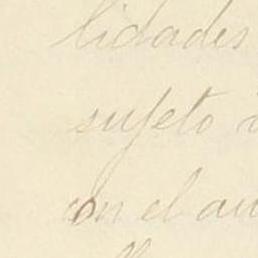 lidades
sujeto
en el